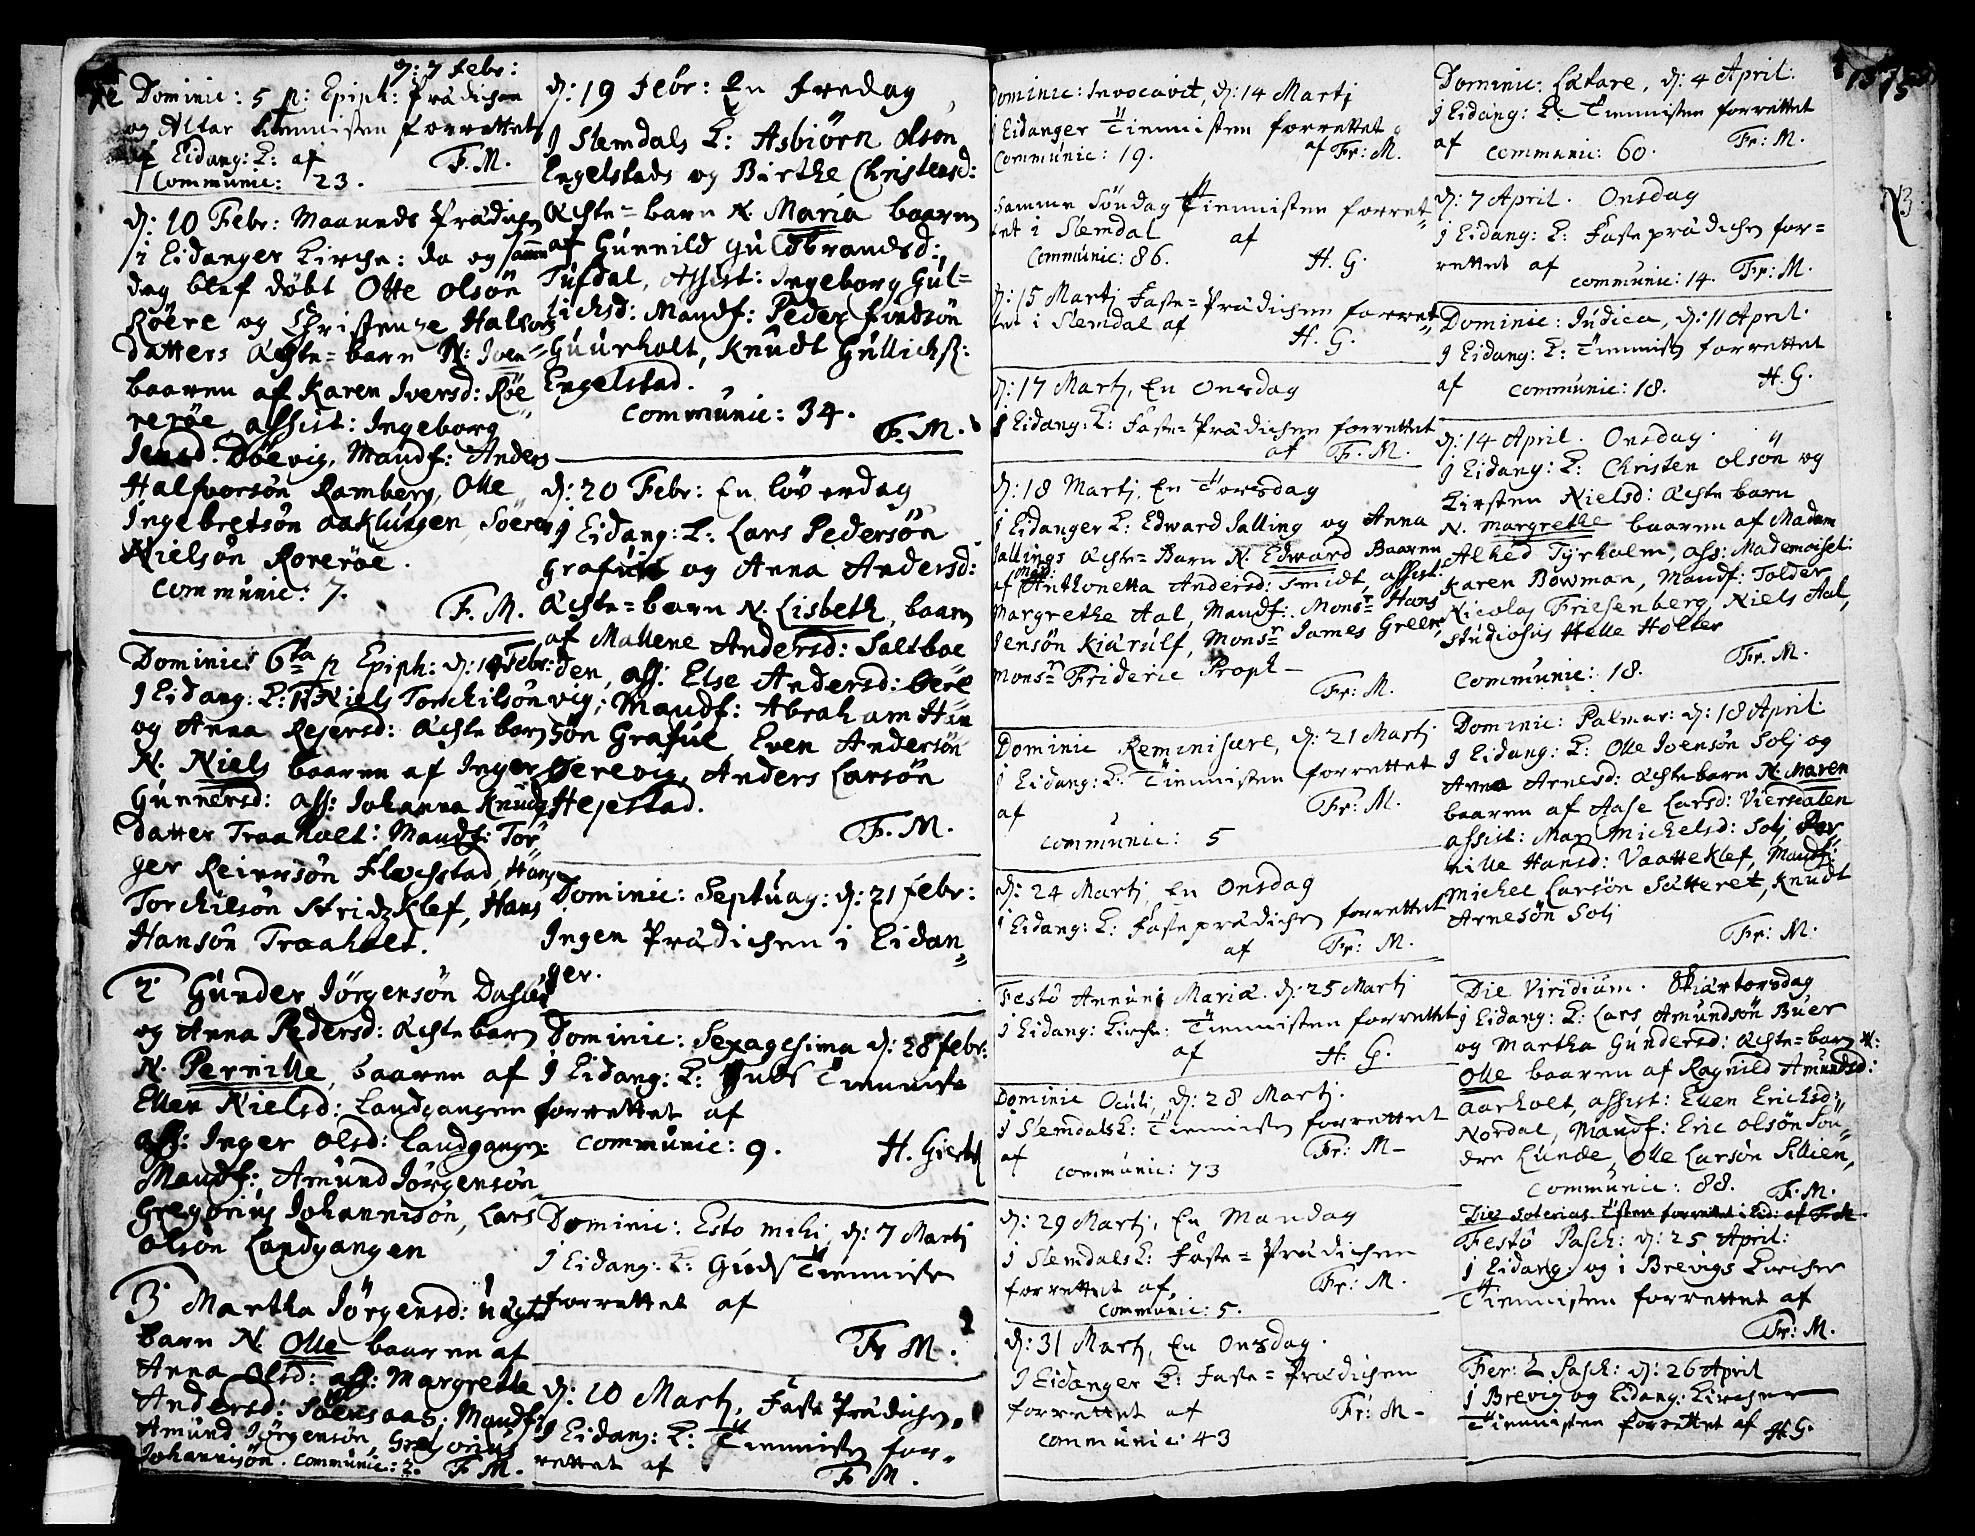 d: 7 Febr:
Dominic: 5 p: Epiph: Prædichen
og Altar Tiennisten forrettet
af Eidang: K: af F. M.
Communic: 23.
d: 10 Febr: Maaneds Prædichen
i Eidanger Kirche: da og samme
dag blef døbt Otte Olsøn
Røere og Christenze Halfors
datters Ægte=barn N: Iven
baaren af Karen Iversd: Røe
rerøe, assist: Ingeborg
Jensd. Døevig, Maudf: Anders
Halfvorsøn Ramberg, Olle
Ingebretsøn Aaklungen, Søeren
Nielsøn Rorerøe.
Communic: 7.
F. M.
Dominic: 6ta p Epiph: d: 14 Febr:
J Eidang: K: Niels Torchilsøn
og Anna Rejersd: Ægte barn
N. Niels baaren af Inger
Gunnersd: ass: Johanna Knuds
datter Traaholt: Maudf: Tor
ger Reiersøn Flachstad, Hans
Torchilsøn Stridzklef, Hans
Hansøn Traaholt.
2 Gunder Jørgensøn
og Anna Pedersd: Ægte barn
N. Pernille, baaren af
Ellen Nielsd: Landgangen
ass: Inger Olsd: Landgangen:
Maudf: Amund Jørgensøn
Gregorius Johannisøn, Lars
Olsøn Landgangen
3 Martha Jørgensd: uægte
barn N. Olle baaren af
Anna Olsd: ass: Margrethe
Andersd: Søersaas: Maudf:
Amund Jørgensøn, Gregorius
Johannisøn. Communic: 2. F. M.
d: 19 Febr: En Fredag
J Slemdals K: Asbiørn Olsøn
Engelstads og Birthe Christensd:
Ægte=barn N. Maria baaren
af Gunnild Guldbrandsd:
Tufdal, Assist: Ingeborg Gul=
lichsd: Maudf: Peder Findsøn
Guurholt, Knudt Gullichs:
Engelstad.
Communic: 34.
F. M.
d: 20 Febr: En Løverdag
J Eidang: K: Lars Pedersøn
Grafuue og Anna Andersd:
Ægte=barn N. Lisbeth, baaren
af Mallene Andersd: Saltboe
den, ass: Else Andersd: Bere
vig; Maudf: Abraham Han
søn Grafue, Even Andersøn
Berevig, Anders Larsøn
Hejestad.
F. M.
Dominic: Septuag: d: 21 Febr:
Ingen Prædichen i Eidan
ger.
Dominic: Sexagesima d: 28 Febr:
J Eidang: K: Guds Tienniste
forrettet af
Communic: 9. H. Gierd
Dominic: Esto mihi, d: 7 Martj
J Eidang: K: Guds Tienniste
forrettet af
Fr M.
d: 10 Martj, Faste Prædichen,
J Eidang: K: Tiennisten for=
rettet af F M.
Dominic: Invocavit, d: 14 Martj
J Eidanger Tiennisten forrettet
Communic: 19. af Fr: M.
Samme Søndag Tiennisten forret=
tet i Slemdal af
Communic: 86. H. G.
d: 15 Martj Faste=Prædichen forret
tet i Slemdal af H. G.
d: 17 Martj, En Onsdag
J Eidang: K: Faste=Prædichen forrettet
af F. M.
d: 18 Martj, En Torsdag
J Eidanger K: Edward Salling og Anna
Sallings Ægte=Barn N. Edward Baaren
af Mad: Anthonetta Andersd: Smidt, assist:
Margrethe Aal, Maudf: Monsr Hans
Jensøn Kiærulf, Monsr James Green,
Monsr Frideric Propt
Fr: M.
Dominic Reminiscere, d: 21 Martj
J Eidang: K: Tiennisten forrettet
af Fr: M.
Communic: 5
d: 24 Martj, En Onsdag
J Eidang: K: Fasteprædichen forrettet
af Fr: M.
Festô Annunj Mariæ. d: 25 Martj
J Eidang: Kirche: Tiennisten forrettet
af H. G.
Dominic Oculi, d: 28 Martj.
J Slemdals K: Tiennisten forrettet
af Fr: M
Communic: 73
d: 29 Martj, En Mandag
J Slemdals K: Faste=Prædichen
forrettet af, Fr: M.
Communic: 5.
d: 31 Martj, En Onsdag.
J Eidanger K: Faste=Prædichen
forrettet af Fr: M
Communic: 43
Dominic: Lætare, d: 4 April:
J Eidang: K: Tiennisten forrettet
af Communic: 60. Fr: M.
d: 7 April. Onsdag
J Eidang: K: Fasteprædichen for=
rettet af Communic: 14. Fr: M.
Dominic: Judica, d: 11 April.
J Eidang: K: Tiennisten forrettet
af Communic: 18. H. G.
d: 14 April. Onsdag.
J Eidang: K: Christen Olsøn og
Kirsten Nielsd: Ægte barn
N. Margrethe baaren af Madam
Alhed Tyrholm, ass: Mademoisel:
Karen Bowman, Maudf: Tolder
Nicolas Friesenberg, Niels Aal,
Studiosus Halle Holter
Communic: 18. Fr. M.
Dominic: Palmar: d: 18 April:
J Eidang: K: Olle Ivensøn Solj og
Anna Arnesd: Ægte barn N. Maren
baaren af Aase Larsd: Vierseaten
assist: Mari Michelsd: Solj, Per
nille Hansd: Vaatteklef, Maudf:
Michel Larsøn Sætteret, Knudt
Arnesøn Solj
Fr: M.
Die Viridium. Skiærtorsdag
J Eidang: K: Lars Amundsøn Buer
og Martha Gundersd: Ægte=barn N:
Olle baaren af Ragnild Amundsd:
Aarholt, assist: Ellen Erichsd:
Nordal, Maudf: Eric Olsøn Søn
dre Lunde, Olle Larsøn Sillien,
Communic: 88. F. M.
Festô Pasch: d: 25 April:
J Eidang: og i Brevigs Kircher
Tiennisten forrettet af
Fr: M.
Fer: 2 Pasch: d: 26 April
J Brevig og Eidang: Kircher
Tiennisten forrettet af H. G.